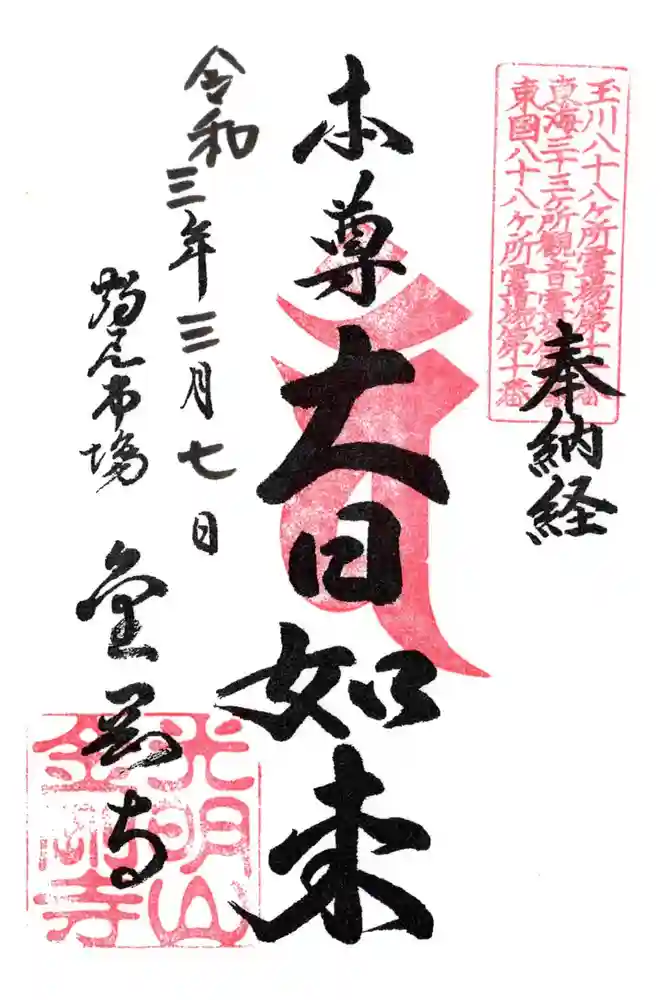 玉川八十八ヶ所霊場第十番
東海三十三ヶ所観音霊場
東国八十八ヶ所霊場第十番
奉納経
本尊大日如来
令和三年三月七日
鶴見市場 金剛寺
光明山
金剛寺